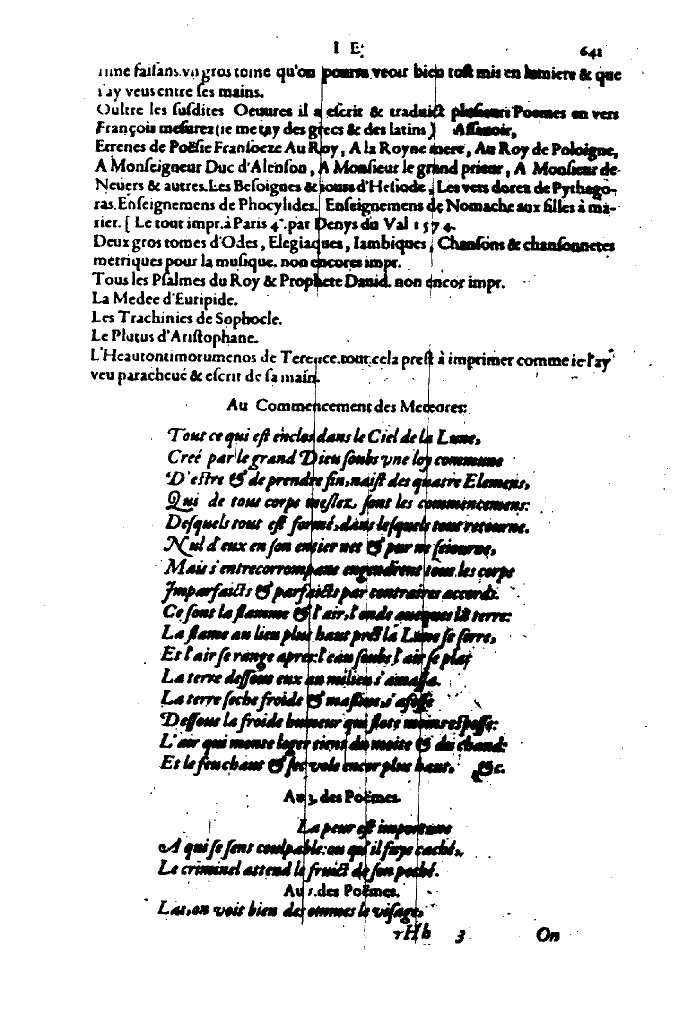 I E. 641
faisans vn gros tome qu'on pourra veoir bien tost mis en lumiere & que
i'ay veus entre ses mains.
Oultre les susdites Oeuures il a escrit & traduict plusieurs Poemes en vers
François mesurez (ie metay des grecs & des latins) Assauoir,
Etrenes de Poësie Fransoeze Au Roy, A la Royne mere, Au Roy de Poloigne,
A Monseigneur Duc d'Alenson, A Monsieur le grand prieur, A Monsieur de
Neuers & autres. Les Besoignes & iours d'Hesiode, Les vers dorez de Pythago-
ras. Enseignemens de Phocylides. Enseignemens de Nomache aux filles à ma-
rier. [ Le tout impr. à Paris 4°. par Denys du Val 1574.
Deux gros tomes d'Odes, Elegiaques, Iambiques, Chansons & chansonnetes
metriques pour la musique. non encores impr.
Tous les Psalmes du Roy & Prophete Dauid. non encor impr.
La Medee d'Euripide.
Les Trachinies de Sophocle.
Le Plutus d'Aristophane.
L'Heautontimorumenos de Terence. tout cela prest à imprimer comme ie l'ay
veu paracheué & escrit de sa main.
Au Commencement des Meteores:
Tout ce qui est enclos dans le Ciel de la Lune,
Creé par le grand Dieu soubs vne loy commune
D'estre & de prendre fin, naist des quatre Elemens,
Qui de tous corps meslez, sont les commencemens:
Desquels tout est formé, dans lesquels tout retourne.
Nul d'eux en son entier net & pur ne seiourne,
Mais s'entrecorrompans engendrent tous les corps
Imparfaicts & parfaicts par contraires accords.
Ce sont la flamme & l'air, l'onde auecques la terre:
La flame au lieu plus haut pres la Lune se serre,
Et l'air se range apres: l'eau soubs l'air se plaist
La terre dessous eux au milieu s'amassa.
La terre seche froide & massiue, s'afesse
Dessous la froide humeur qui flote moins espesse:
L'air qui monte leger tient du moite & du chaud:
Et le feu chaut & sec vole encor plus haut. &c.
Au 3. des Poëmes.
La peur est importune
A qui se sent coulpable: ou qu'il fuye caché,
Le criminel attend le fruict de son peché.
Au 5. des Poëmes.
Las, on voit bien des ommes le visage,
Hh 3 On